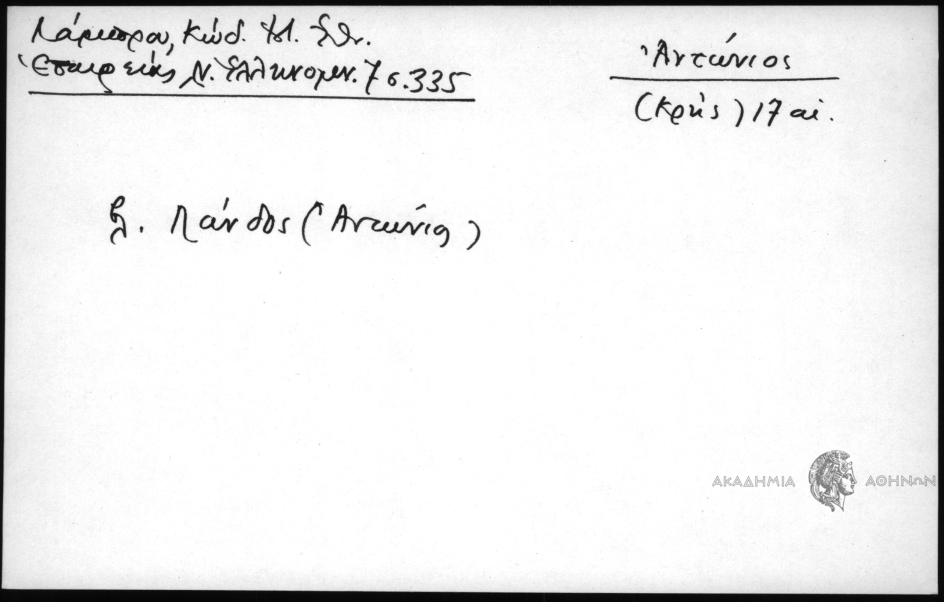 Λάμπρου, Κώδ. Ἱστ. Ἐθν.
Ἑταιρείας, Ν. Ἑλληνομν. 7 σ. 335
Ἀντώνιος
(Κρής) 17 αἰ.
βλ. Πάνδος (Ἀντώνιος)
ΑΚΑΔΗΜΙΑ ΑΘΗΝΩΝ